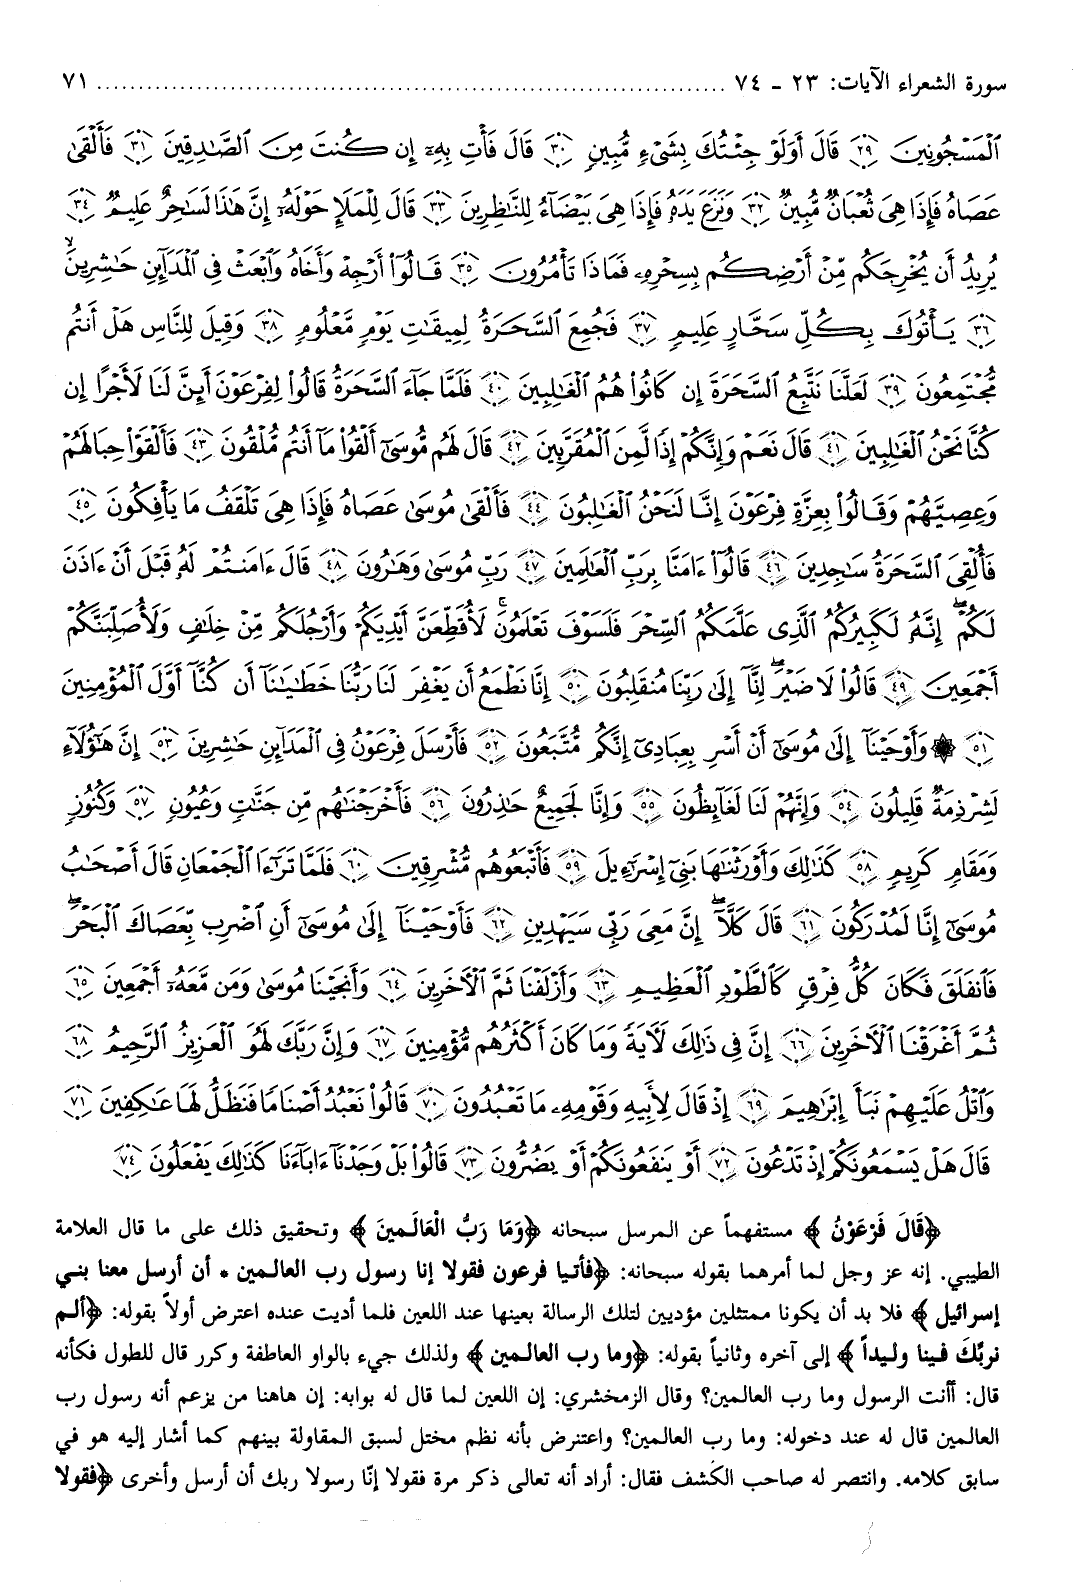 سورة الشعراء الآيات: ٢٣ - ٧٤ ........................................................................ ٧١
ٱلْمَسْجُونِينَ ﴿٢٩﴾ قَالَ أَوَلَوْ جِئْتُكَ بِشَىْءٍ مُّبِينٍ ﴿٣٠﴾ قَالَ فَأْتِ بِهِۦٓ إِن كُنتَ مِنَ ٱلصَّٰدِقِينَ ﴿٣١﴾ فَأَلْقَىٰ
عَصَاهُ فَإِذَا هِىَ ثُعْبَانٌ مُّبِينٌ ﴿٣٢﴾ وَنَزَعَ يَدَهُۥ فَإِذَا هِىَ بَيْضَآءُ لِلنَّٰظِرِينَ ﴿٣٣﴾ قَالَ لِلْمَلَإِ حَوْلَهُۥٓ إِنَّ هَٰذَا لَسَٰحِرٌ عَلِيمٌ ﴿٣٤﴾
يُرِيدُ أَن يُخْرِجَكُم مِّنْ أَرْضِكُم بِسِحْرِهِۦ فَمَاذَا تَأْمُرُونَ ﴿٣٥﴾ قَالُوٓا۟ أَرْجِهْ وَأَخَاهُ وَٱبْعَثْ فِى ٱلْمَدَآئِنِ حَٰشِرِينَ ۙ
﴿٣٦﴾ يَأْتُوكَ بِكُلِّ سَحَّارٍ عَلِيمٍ ﴿٣٧﴾ فَجُمِعَ ٱلسَّحَرَةُ لِمِيقَٰتِ يَوْمٍ مَّعْلُومٍ ﴿٣٨﴾ وَقِيلَ لِلنَّاسِ هَلْ أَنتُم
مُّجْتَمِعُونَ ﴿٣٩﴾ لَعَلَّنَا نَتَّبِعُ ٱلسَّحَرَةَ إِن كَانُوا۟ هُمُ ٱلْغَٰلِبِينَ ﴿٤٠﴾ فَلَمَّا جَآءَ ٱلسَّحَرَةُ قَالُوا۟ لِفِرْعَوْنَ أَئِنَّ لَنَا لَأَجْرًا إِن
كُنَّا نَحْنُ ٱلْغَٰلِبِينَ ﴿٤١﴾ قَالَ نَعَمْ وَإِنَّكُمْ إِذًا لَّمِنَ ٱلْمُقَرَّبِينَ ﴿٤٢﴾ قَالَ لَهُم مُّوسَىٰٓ أَلْقُوا۟ مَآ أَنتُم مُّلْقُونَ ﴿٤٣﴾ فَأَلْقَوْا۟ حِبَالَهُمْ
وَعِصِيَّهُمْ وَقَالُوا۟ بِعِزَّةِ فِرْعَوْنَ إِنَّا لَنَحْنُ ٱلْغَٰلِبُونَ ﴿٤٤﴾ فَأَلْقَىٰ مُوسَىٰ عَصَاهُ فَإِذَا هِىَ تَلْقَفُ مَا يَأْفِكُونَ ﴿٤٥﴾
فَأُلْقِىَ ٱلسَّحَرَةُ سَٰجِدِينَ ﴿٤٦﴾ قَالُوٓا۟ ءَامَنَّا بِرَبِّ ٱلْعَٰلَمِينَ ﴿٤٧﴾ رَبِّ مُوسَىٰ وَهَٰرُونَ ﴿٤٨﴾ قَالَ ءَامَنتُمْ لَهُۥ قَبْلَ أَنْ ءَاذَنَ
لَكُمْ ۖ إِنَّهُۥ لَكَبِيرُكُمُ ٱلَّذِى عَلَّمَكُمُ ٱلسِّحْرَ فَلَسَوْفَ تَعْلَمُونَ ۚ لَأُقَطِّعَنَّ أَيْدِيَكُمْ وَأَرْجُلَكُم مِّنْ خِلَٰفٍ وَلَأُصَلِّبَنَّكُمْ
أَجْمَعِينَ ﴿٤٩﴾ قَالُوا۟ لَا ضَيْرَ ۖ إِنَّآ إِلَىٰ رَبِّنَا مُنقَلِبُونَ ﴿٥٠﴾ إِنَّا نَطْمَعُ أَن يَغْفِرَ لَنَا رَبُّنَا خَطَٰيَٰنَآ أَن كُنَّآ أَوَّلَ ٱلْمُؤْمِنِينَ
﴿٥١﴾ ۞ وَأَوْحَيْنَآ إِلَىٰ مُوسَىٰٓ أَنْ أَسْرِ بِعِبَادِىٓ إِنَّكُم مُّتَّبَعُونَ ﴿٥٢﴾ فَأَرْسَلَ فِرْعَوْنُ فِى ٱلْمَدَآئِنِ حَٰشِرِينَ ﴿٥٣﴾ إِنَّ هَٰٓؤُلَآءِ
لَشِرْذِمَةٌ قَلِيلُونَ ﴿٥٤﴾ وَإِنَّهُمْ لَنَا لَغَآئِظُونَ ﴿٥٥﴾ وَإِنَّا لَجَمِيعٌ حَٰذِرُونَ ﴿٥٦﴾ فَأَخْرَجْنَٰهُم مِّن جَنَّٰتٍ وَعُيُونٍ ﴿٥٧﴾ وَكُنُوزٍ
وَمَقَامٍ كَرِيمٍ ﴿٥٨﴾ كَذَٰلِكَ وَأَوْرَثْنَٰهَا بَنِىٓ إِسْرَٰٓءِيلَ ﴿٥٩﴾ فَأَتْبَعُوهُم مُّشْرِقِينَ ﴿٦٠﴾ فَلَمَّا تَرَٰٓءَا ٱلْجَمْعَانِ قَالَ أَصْحَٰبُ
مُوسَىٰٓ إِنَّا لَمُدْرَكُونَ ﴿٦١﴾ قَالَ كَلَّآ ۖ إِنَّ مَعِىَ رَبِّى سَيَهْدِينِ ﴿٦٢﴾ فَأَوْحَيْنَآ إِلَىٰ مُوسَىٰٓ أَنِ ٱضْرِب بِّعَصَاكَ ٱلْبَحْرَ ۖ
فَٱنفَلَقَ فَكَانَ كُلُّ فِرْقٍ كَٱلطَّوْدِ ٱلْعَظِيمِ ﴿٦٣﴾ وَأَزْلَفْنَا ثَمَّ ٱلْءَاخَرِينَ ﴿٦٤﴾ وَأَنجَيْنَا مُوسَىٰ وَمَن مَّعَهُۥٓ أَجْمَعِينَ ﴿٦٥﴾
ثُمَّ أَغْرَقْنَا ٱلْءَاخَرِينَ ﴿٦٦﴾ إِنَّ فِى ذَٰلِكَ لَءَايَةً وَمَا كَانَ أَكْثَرُهُم مُّؤْمِنِينَ ﴿٦٧﴾ وَإِنَّ رَبَّكَ لَهُوَ ٱلْعَزِيزُ ٱلرَّحِيمُ ﴿٦٨﴾
وَٱتْلُ عَلَيْهِمْ نَبَأَ إِبْرَٰهِيمَ ﴿٦٩﴾ إِذْ قَالَ لِأَبِيهِ وَقَوْمِهِۦ مَا تَعْبُدُونَ ﴿٧٠﴾ قَالُوا۟ نَعْبُدُ أَصْنَامًا فَنَظَلُّ لَهَا عَٰكِفِينَ ﴿٧١﴾
قَالَ هَلْ يَسْمَعُونَكُمْ إِذْ تَدْعُونَ ﴿٧٢﴾ أَوْ يَنفَعُونَكُمْ أَوْ يَضُرُّونَ ﴿٧٣﴾ قَالُوا۟ بَلْ وَجَدْنَآ ءَابَآءَنَا كَذَٰلِكَ يَفْعَلُونَ ﴿٧٤﴾
﴿قَالَ فَرْعَوْنُ﴾ مستفهماً عن المرسل سبحانه ﴿وَمَا رَبُّ الْعَالَمينَ﴾ وتحقيق ذلك على ما قال العلامة
الطيبي. إنه عز وجل لما أمرهما بقوله سبحانه: ﴿فأتيا فرعون فقولا إنا رسول رب العالمين * أن أرسل معنا بني
إسرائيل﴾ فلا بد أن يكونا ممتثلين مؤديين لتلك الرسالة بعينها عند اللعين فلما أديت عنده اعترض أولاً بقوله: ﴿ألم
نربّكَ فينا وليداً﴾ إلى آخره وثانياً بقوله: ﴿وما رب العالمين﴾ ولذلك جيء بالواو العاطفة وكرر قال للطول فكأنه
قال: أأنت الرسول وما رب العالمين؟ وقال الزمخشري: إن اللعين لما قال له بوابه: إن هاهنا من يزعم أنه رسول رب
العالمين قال له عند دخوله: وما رب العالمين؟ واعتترض بأنه نظم مختل لسبق المقاولة بينهم كما أشار إليه هو في
سابق كلامه. وانتصر له صاحب الكشف فقال: أراد أنه تعالى ذكر مرة فقولا إنّا رسولا ربك أن أرسل وأخرى ﴿فقولا